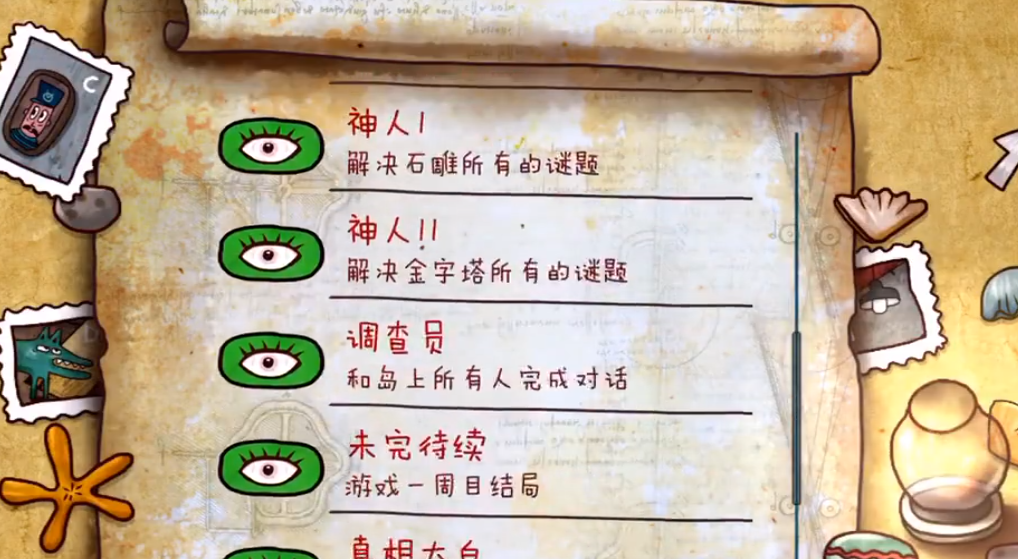 神人I
解决石雕所有的谜题
神人II
解决金字塔所有的谜题
调查员
和岛上所有人完成对话
未完待续
游戏一周目结局
真相大白